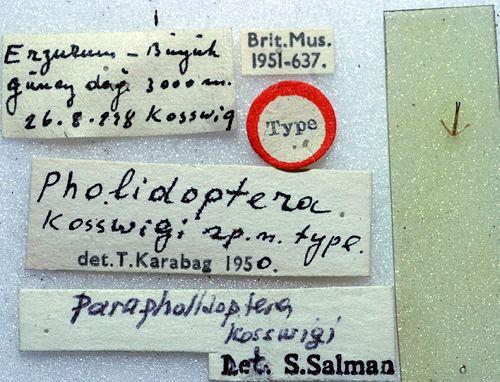 Erzurum - Büyük
Güney dağ. 3000 m.
26.8.938 Kosswig
Brit.Mus.
1951-637.
Type
Pholidoptera
Kosswigi sp.n. type.
det.T.Karabag 1950.
Parapholidoptera
Kosswigi
Det. S.Salman